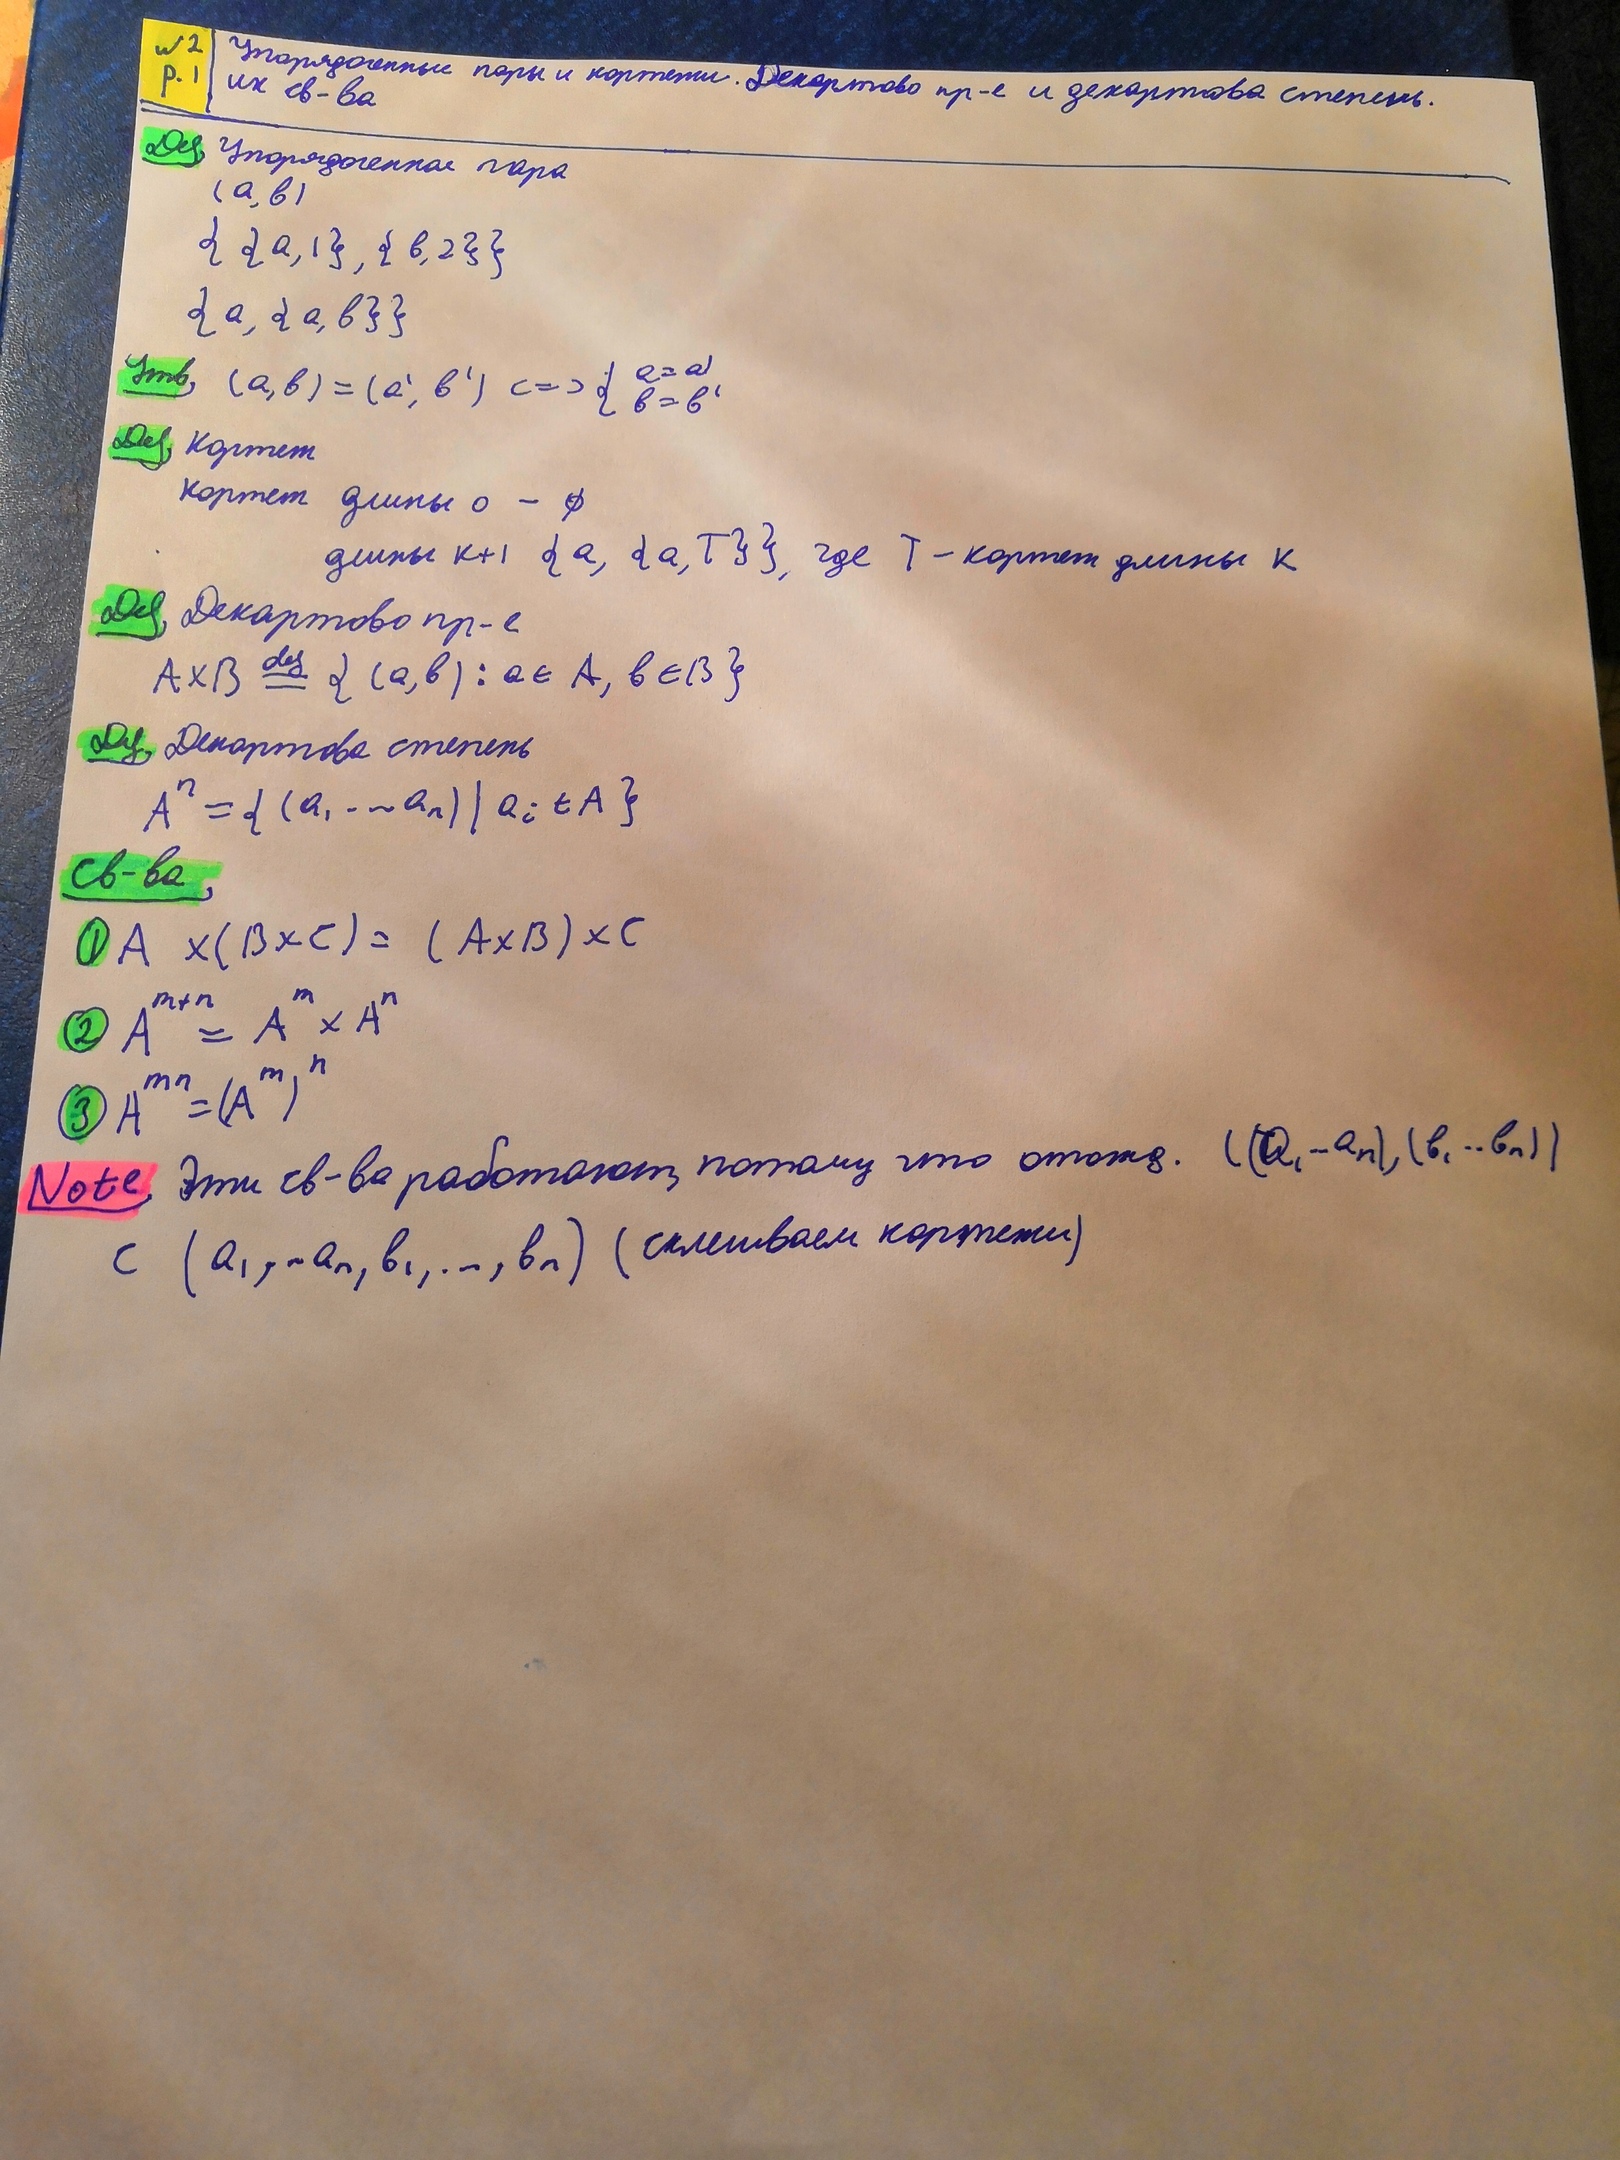 №2 Упорядоченные пары и кортежи. Декартово пр-е и декартова степень.
р.1 их св-ва
Def, Упорядоченная пара
(a,b)
{ {a,1}, {b,2}}
{a, {a,b}}
Утв, (a,b) = (a', b') <=> { a=a' b=b'
Def, Кортеж
кортеж длины 0 - ∅
длины k+1 {a, {a,T}}, где T - кортеж длины k
Def, Декартово пр-е
A×B def= { (a,b) : a∈A, b∈B}
Def, Декартова степень
Aⁿ = { (a₁ ... aₙ) | aᵢ ∈ A }
Св-ва,
① A ×(B×C) = (A×B)×C
② Aᵐ⁺ⁿ = Aᵐ × Aⁿ
③ Aᵐⁿ = (Aᵐ)ⁿ
Note, Эти св-ва работают, потому что отожд. ((a₁ ... aₙ), (b₁ ... bₙ))
с (a₁, ... aₙ, b₁, ..., bₙ) (склеиваем кортежи)